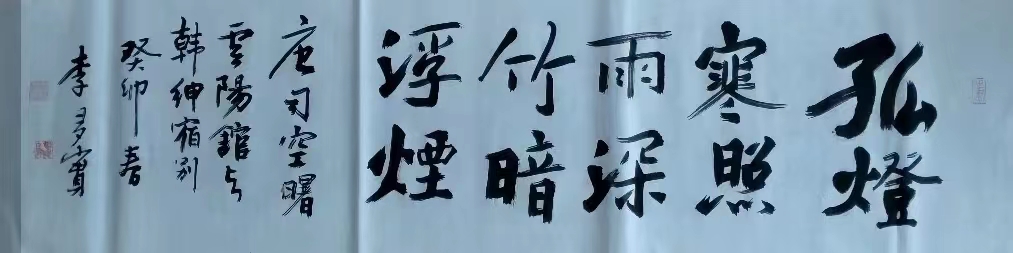 孤燈
寒照
雨深
竹暗
浮煙
唐司空曙
雲陽館与
韩紳宿别
癸卯春
李多寳